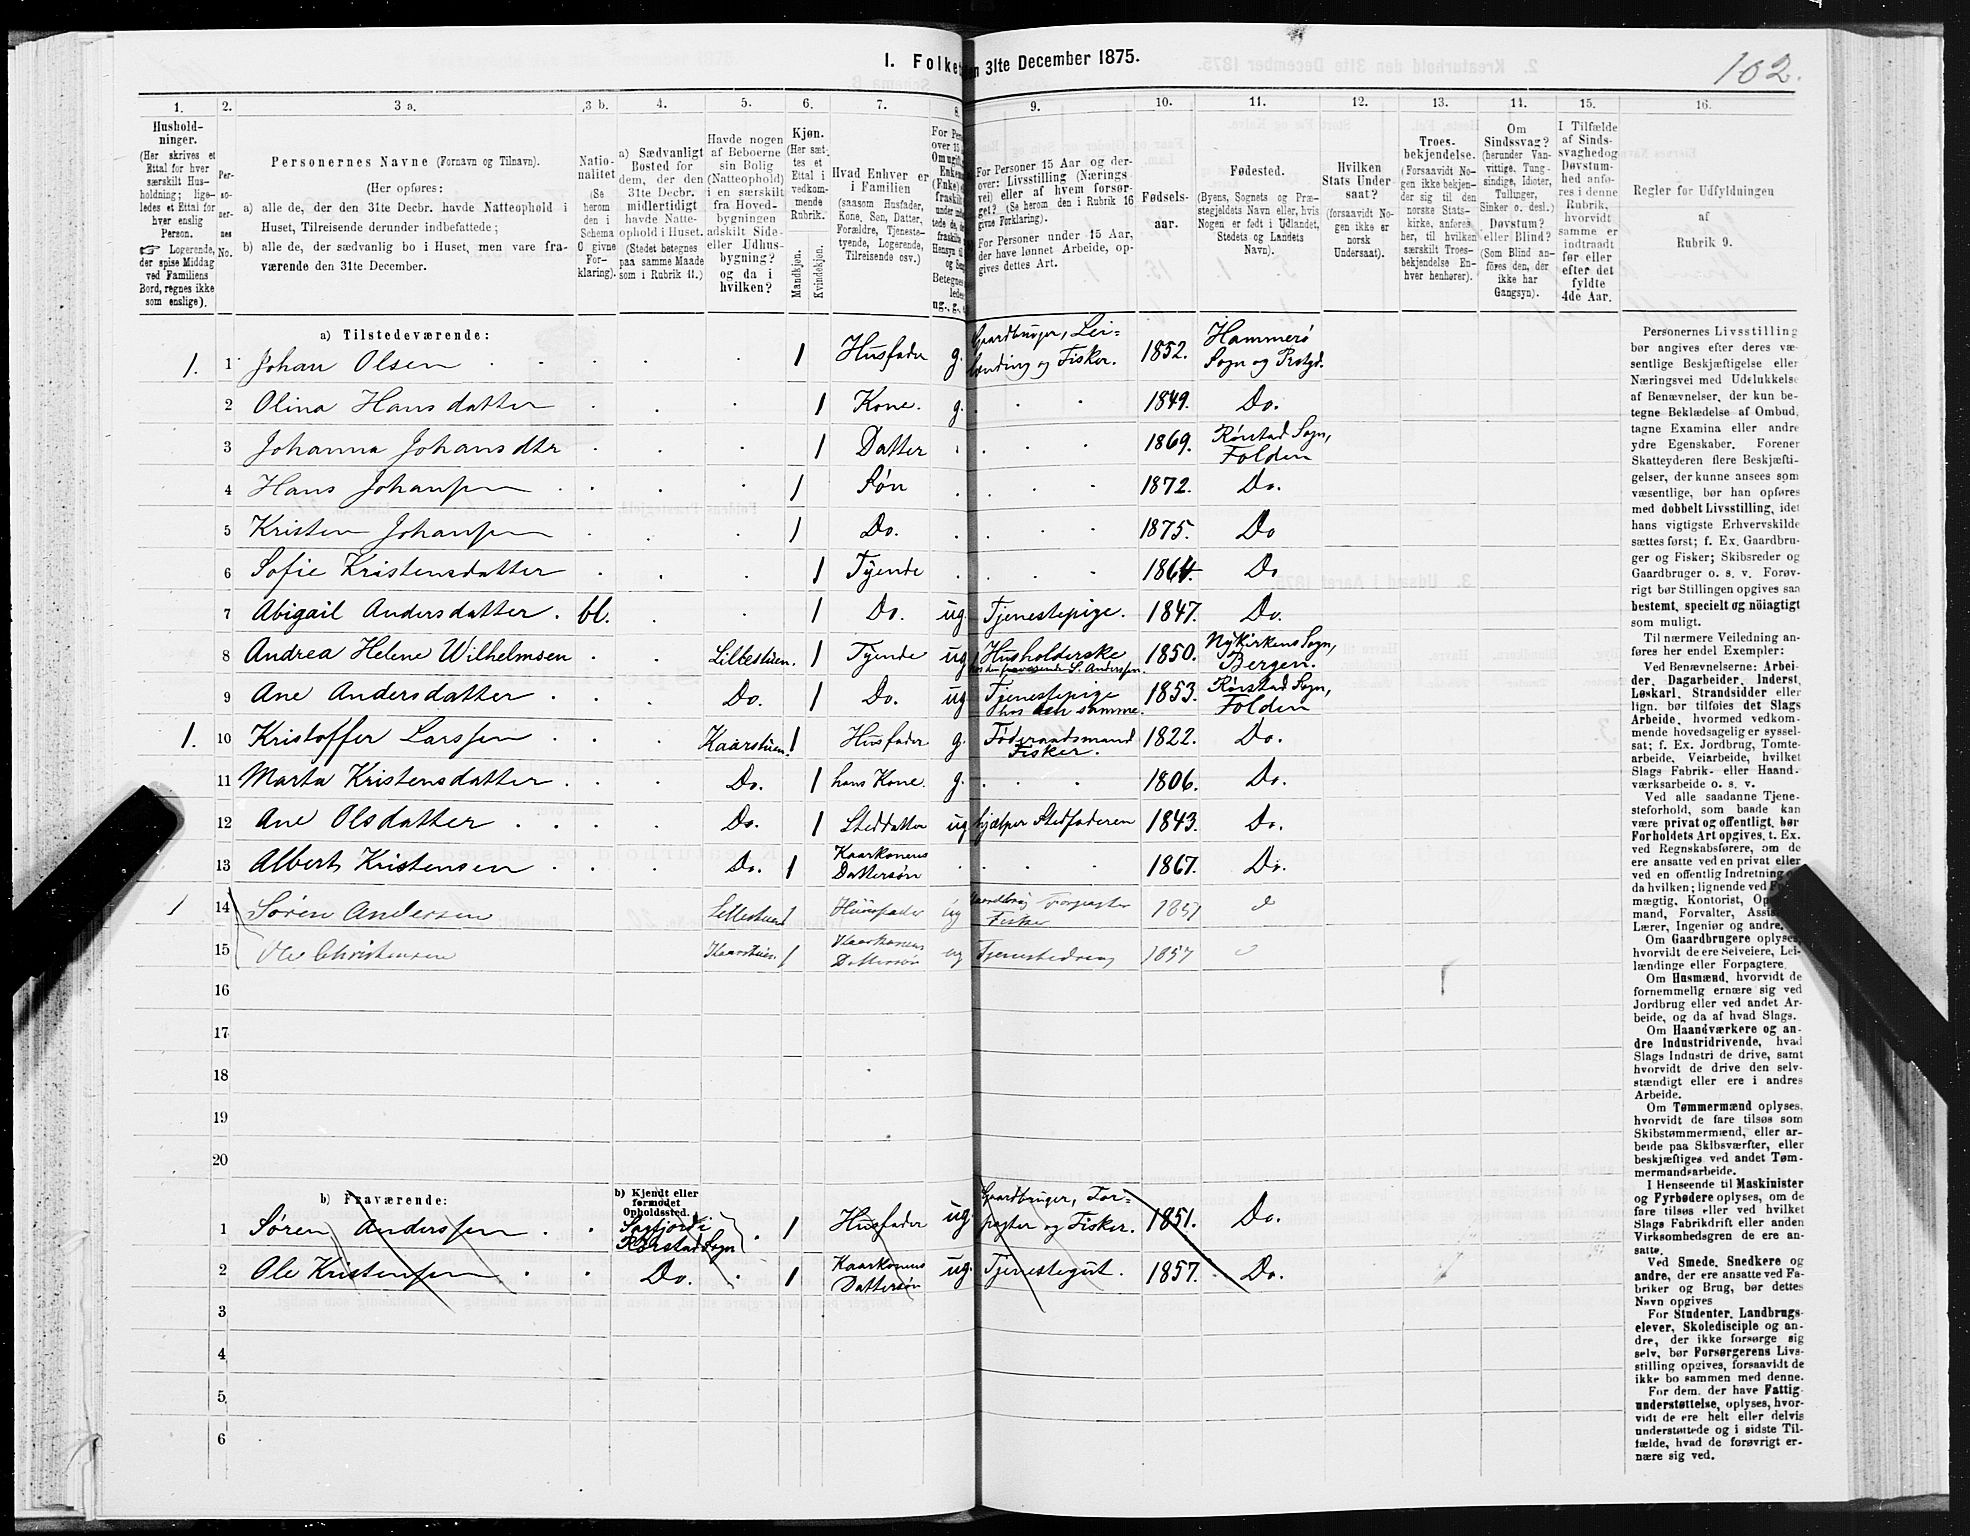 1. Folket
n 31te December 1875.
102.
1.
2.
3 a.
3 b.
4.
5.
6.
7.
8.
9.
10.
11.
12.
13.
14.
15.
16.
Hushold-
ninger.
(Her skrives et
Ettal for hver
særskilt Hus-
holdning; lige-
ledes et Ettal for
hver enslig
Person.
☞ Logerende,
der spise Middag
ved Familiens
Bord, regnes ikke
som enslige).
Per-
so-
ner-
nes
No.
Personernes Navne (Fornavn og Tilnavn).
(Her opføres:
a) alle de, der den 31te Decbr. havde Natteophold i
Huset, Tilreisende derunder indbefattede;
b) alle de, der sædvanlig bo i Huset, men vare fra-
værende den 31te December.
Natio-
nalitet
(Se
herom
den i
Schema
O givne
For-
klaring).
a) Sædvanligt
Bosted for
dem, der den
31te Decbr.
midlertidigt
havde Natte-
ophold i Huset.
(Stedet betegnes
paa samme Maade
som i Rubrik 11.)
Havde nogen
af Beboerne
sin Bolig
(Natteophold)
i en særskilt
fra Hoved-
bygningen
adskilt Side-
eller Udhus-
bygning?
og da i
hvilken?
Kjøn.
(Her sæt-
tes et
Ettal i
vedkom-
mende
Rubrik.
Mandkjøn.
Kvindekjøn.
Hvad Enhver er
i Familien
(saasom Husfader,
Kone, Søn, Datter,
Forældre, Tjeneste-
tyende, Logerende,
Tilreisende osv.)
For Personer 15 Aar og der-
over: Livsstilling (Nærings-
vei) eller af hvem forsør-
get? (Se herom den i Rubrik 16
givne Forklaring).
For Personer under 15 Aar,
der have lønnet Arbeide, op-
gives dettes Art.
Fødsels-
aar.
Fødested.
(Byens, Sognets og Præ-
stegjeldets Navn eller, hvis
Nogen er født i Udlandet,
Stedets og Landets
Navn).
Hvilken
Stats Under-
saat?
(forsaavidt No-
gen ikke er
norsk
Undersaat).
Troes-
bekjendelse.
(Forsaavidt No-
gen ikke bekjen-
der sig til den
norske Stats-
kirke, anføres
her, til hvilken
særskilt Troes-
bekjendelse En-
hver henhører).
Om
Sindssvag?
(herunder Van-
vittige, Tung-
sindige, Idioter,
Tullinger,
Sinker o. desl.)
Døvstum?
eller Blind?
(Som Blind an-
føres den, der
ikke har
Gangsyn).
I Tilfælde
af Sinds-
svaghed og
Døvstum-
hed anfø-
res i denne
Rubrik,
hvorvidt
samme er
indtraadt
før eller
efter det
fyldte
4de Aar.
Regler for Udfyldningen
af
Rubrik 9.
a) Tilstedeværende:
1. 1 Johan Olsen 1 Husfader g. Gaardbruger, Lei-
lænding og Fisker. 1852. Hammerø
Sogn og Prstgd.
2 Olina Hansdatter 1 Kone. g. 1849. Do.
3 Johanna Johansdtr 1 Datter 1869. Rørstad Sogn,
Folden
4 Hans Johansen 1 Søn 1872. Do.
5 Kristen Johansen 1 Do. 1875. Do
6 Sofie Kristensdatter 1 Tyende 1864. Do
7 Abigail Andersdatter. bl. 1 Do. ug. Tjenestepige. 1847. Do.
8 Andrea Helene Wilhelmsen Lillestuen. 1 Tyende ug Husholderske
hos den fraværende S. Anderssen. 1850. Nykirkens Sogn,
Bergen.
9 Ane Andersdatter Do. 1 Do. ug Tjenestepige
hos den samme. 1853. Rørstad Sogn,
Folden
1. 10 Kristoffer Larssen Kaarstuen 1 Husfader g. Føderaadsmand
Fisker. 1822. Do.
11 Marta Kristensdatter Do. 1 hans Kone. g. 1806. Do.
12 Ane Olsdatter Do. 1 Steddatter ug. hjælper Stedfaderen 1843. Do.
13 Albert Kristensen Do. 1 Kaarkonens
Dattersøn 1867. Do.
1 14 Søren Andersen Lillestuen 1 Husfader ug Gaardbrug Forpagter
Fisker 1851 d
15 Ole Christensen Kaarstuen 1 Kaarkonens
Dattersøn ug Tjenestedreng 1857
16
17
18
19
20
b) Fraværende:
b) Kjendt eller
formodet
Opholdssted.
1 Søren Anderssen Sagfjord i
Rørstad Sogn 1 Husfader ug. Gaardbruger, For-
pagter og Fisker. 1851. Do.
2 Ole Kristensen Do. 1 Kaarkonens
Dattersøn ug. Tjenestegut. 1857. Do.
3
4
5
6
Personernes Livsstilling
bør angives efter deres væ-
sentlige Beskjæftigelse eller
Næringsvei med Udelukkelse
af Benævnelser, der kun be-
tegne Beklædelse af Ombud,
tagne Examina eller andre
ydre Egenskaber. Forener
Skatteyderen flere Beskjæfti-
gelser, der kunne ansees som
væsentlige, bør han opføres
med dobbelt Livsstilling, idet
hans vigtigste Erhvervskilde
sættes først; f. Ex. Gaardbru-
ger og Fisker; Skibsreder og
Gaardbruger o. s. v. Forøv-
rigt bør Stillingen opgives saa
bestemt, specielt og nöiagtigt
som muligt.
Til nærmere Veiledning an-
føres her endel Exempler:
Ved Benævnelserne: Arbei-
der, Dagarbeider, Inderst,
Løskarl, Strandsidder eller
lign. bør tilføies det Slags
Arbeide, hvormed vedkom-
mende hovedsagelig er syssel-
sat; f. Ex. Jordbrug, Tomte-
arbeide, Veiarbeide, hvilket
Slags Fabrik- eller Haand-
værksarbeide o. s. v.
Ved alle saadanne Tjene-
steforhold, som baade kan
være privat og offentligt, bør
Forholdets Art opgives, t. Ex.
ved Regnskabsførere, om de
ere ansatte ved en privat eller
ved en offentlig Indretning
da hvilken; lignende ved
mægtig, Kontorist,
mand, Forvalter,
Lærer, Ingeniør og andre.
Om Gaardbrugere oplyses,
hvorvidt de ere Selveiere, Lei-
lændinge eller Forpagtere.
Om Husmænd, hvorvidt de
fornemmelig ernære sig ved
Jordbrug eller ved andet Ar-
beide, og da af hvad Slags.
Om Haandværkere og an-
dre Industridrivende, hvad
Slags Industri de drive, samt
hvorvidt de drive den selv-
stændigt eller ere i andres
Arbeide.
Om Tømmermænd oplyses,
hvorvidt de fare tilsøs som
Skibstømmermænd, eller ar-
beide paa Skibsværfter, eller
beskjæftiges ved andet Tøm-
mermandsarbeide.
I Henseende til Maskinister
og Fyrbødere oplyses, om de
fare tilsøs eller ved hvilket
Slags Fabrikdrift eller anden
Virksomhedsgren de ere an-
satte.
Ved Smede, Snedkere og
andre, der ere ansatte ved Fa-
briker og Brug, bør dettes
Navn opgives
For Studenter, Landbrugs-
elever, Skoledisciple og an-
dre, der ikke forsørge sig
selv, bør Forsørgerens Livs-
stilling opgives, forsaavidt de
ikke bo sammen med denne.
For dem, der have Fattig-
understøttelse, oplyses, hvor-
vidt de ere helt eller delvis
understøttede og i sidste Til-
fælde, hvad de forøvrigt er-
nære sig ved.